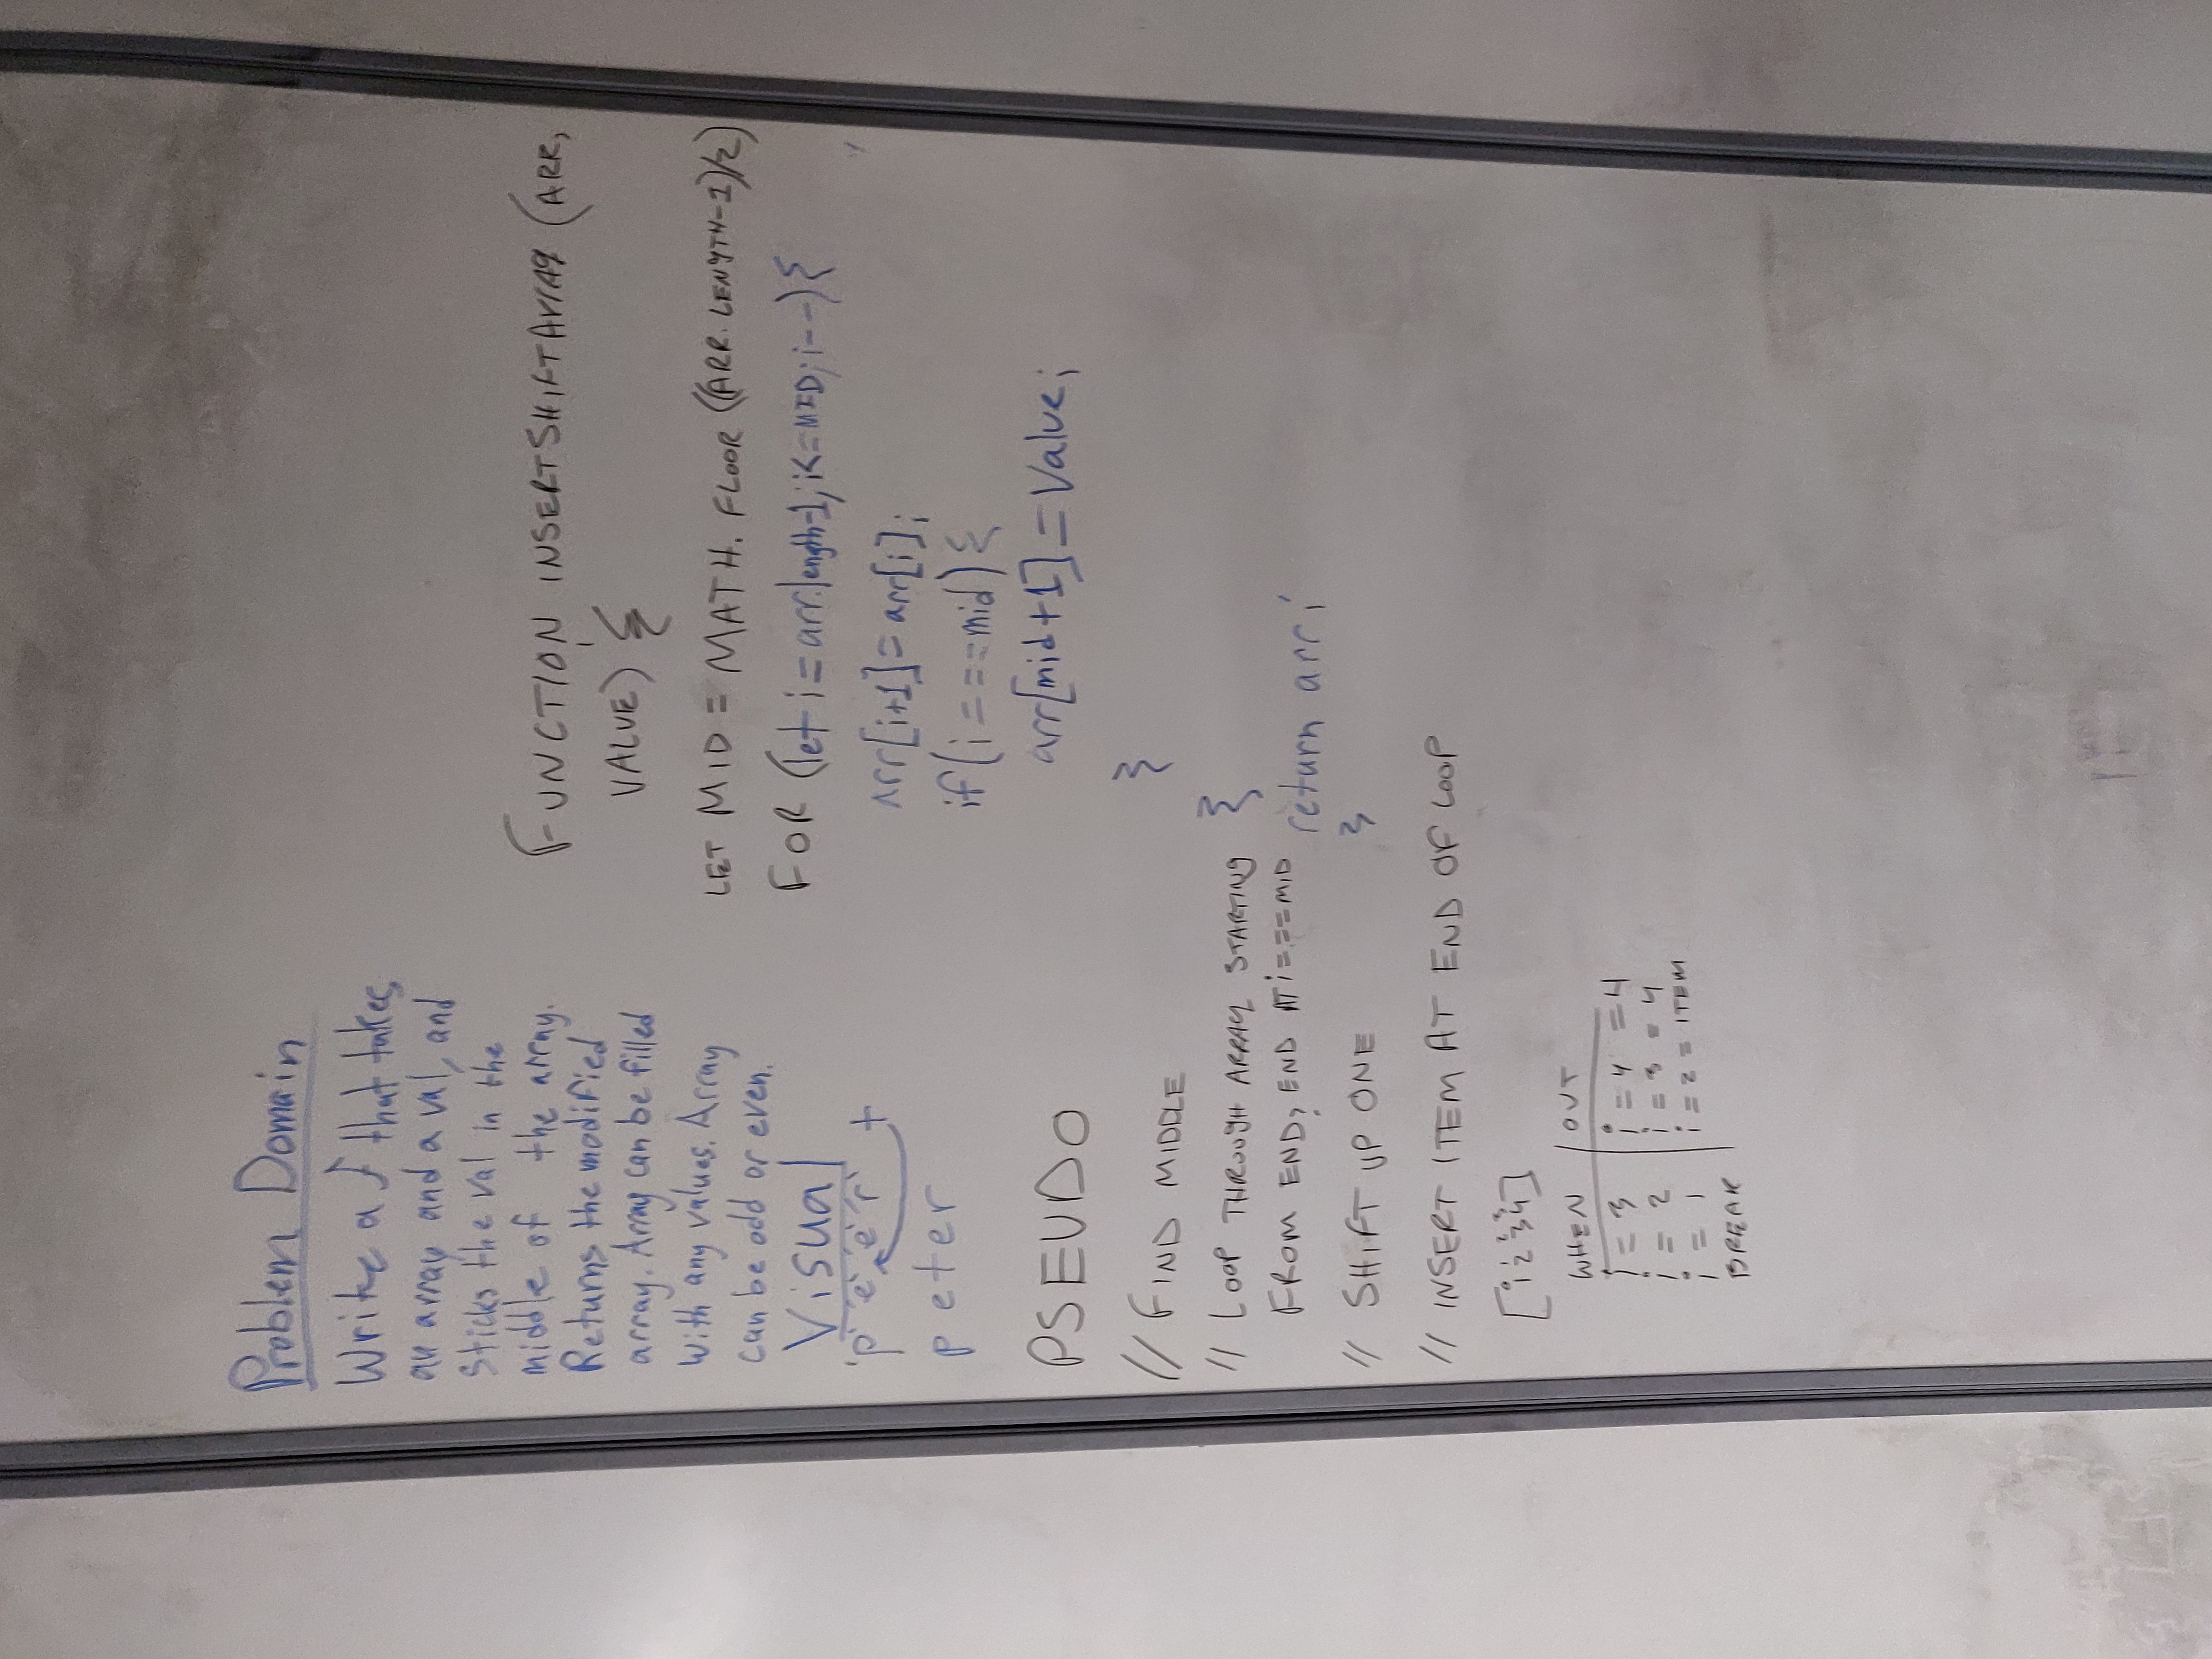 Problem Domain
Write a f that takes
an array and a val, and
sticks the val in the
middle of the array.
Returns the modified
array. Array can be filled
with any values. Array
can be odd or even.
Visual
'p' 'e' 'e' 'r' t
peter
PSEUDO
// FIND MIDDLE
// LOOP THROUGH ARRAY STARTING
FROM END; END AT i===MID
// SHIFT UP ONE
// INSERT ITEM AT END OF LOOP
0 1 2 3
[1 2 3 4]
WHEN | OUT
i = 3 | i = 4 = 4
i = 2 | i = 3 = 4
i = 1 | i = 2 = ITEM
BREAK
FUNCTION INSERTSHIFTArrAy (ARR,
VALUE) {
LET MID = MATH. FLOOR ((ARR. LENGTH-1)/2)
FOR (let i = arr.length-1; i<=MID; i--) {
Arr[i+1] = arr[i];
if (i === mid) {
arr[mid+1] = Value;
}
}
return arr;
}